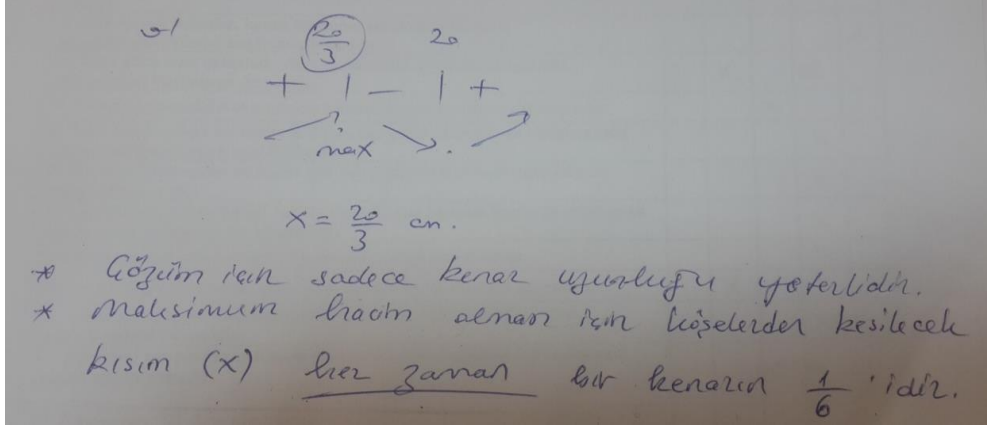 v'
20/3 20
+ | - | +
max
x = 20/3 cm.
* Çözüm için sadece kenar uzunluğu yeterlidir.
* Maksimum hacim olması için köşelerden kesilecek
kısım (x) her zaman bir kenarın 1/6 'idir.